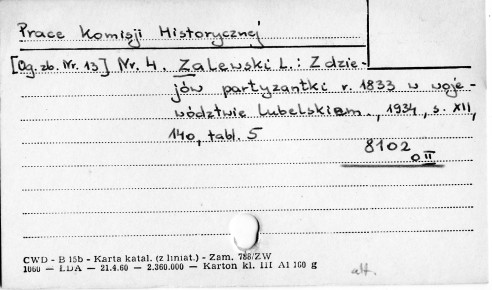 Prace Komisji Historycznej
[Og. zb. Nr. 13] Nr. 4. Zalewski L.: Z dzie-
jów partyzantki r. 1833 w woje-
wództwie Lubelskiem., 1934, s. XII,
140, tabl. 5
8102
0 II
CWD - B 15b - Karta katal. (z liniat.) - Zam. 788/ZW
1060 — LDA — 21.4.60 — 2.360.000 — Karton kl. III A1 160 g
alf.